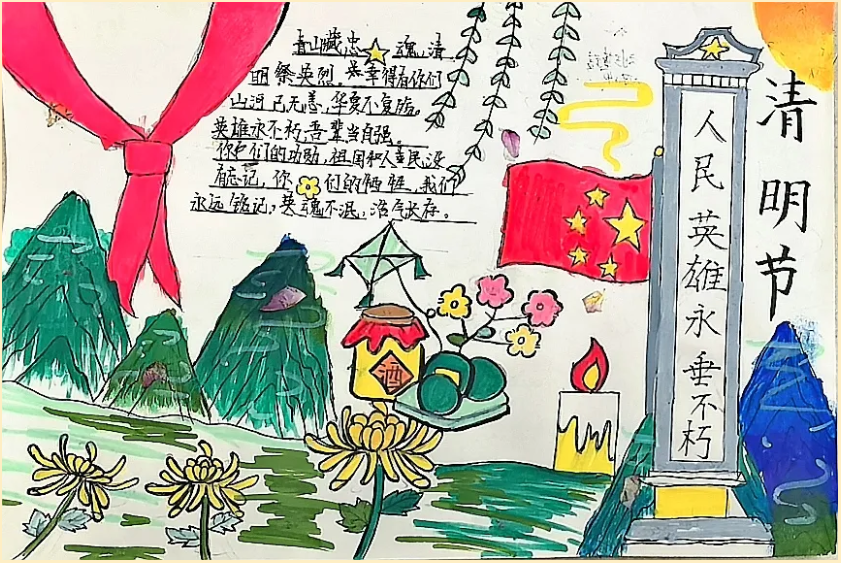 青山藏忠魂,清
明祭英烈。英幸得看你们
山河已无恙,华夏不复殇。
英雄永不朽,吾辈当自强。
你们的功勋,祖国和人民没
有忘记,你们的牺牲,我们
永远铭记,英魂不泯,浩气长存。
清明节
人民英雄永垂不朽
酒